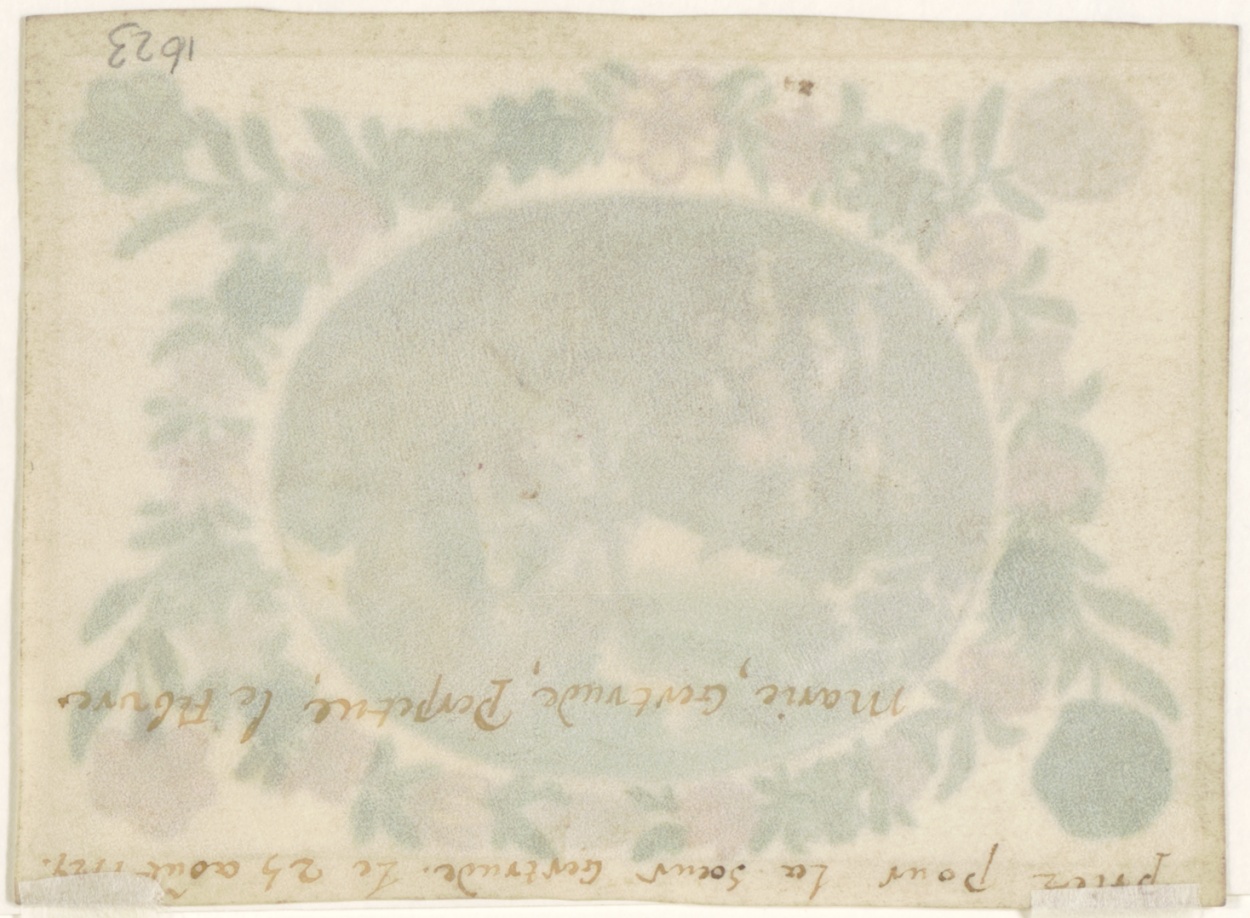 priez pour La sœur Gertrude. Le 25 août
Marie, Gertrude, Perpetue, le Febvre.
1623